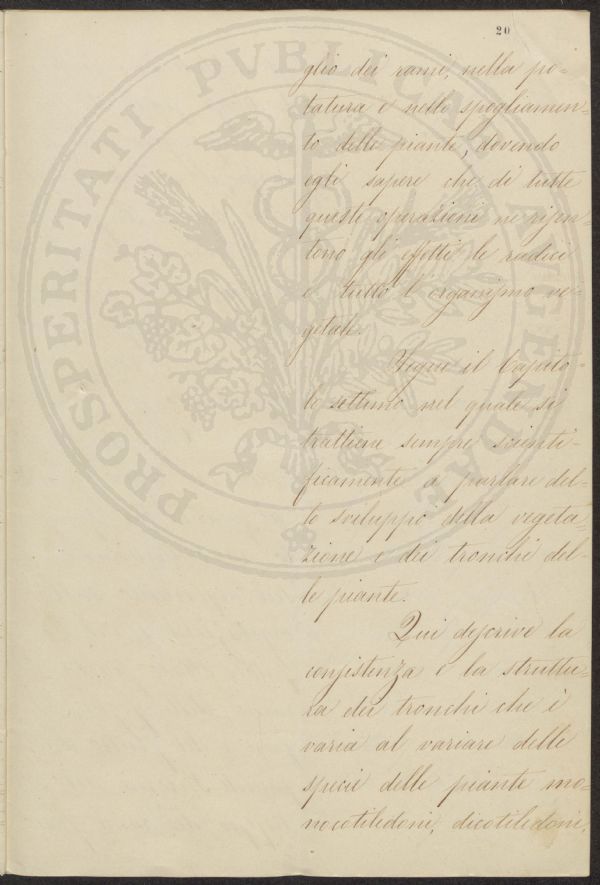 20
glio dei rami, nella po-
tatura e nello spogliamen-
to delle piante, dovendo
egli sapere che di tutte
queste operazioni ne risen-
tono gli effetti le radici
e tutto l'organismo ve-
getale.
Segue il Capito-
lo settimo nel quale si
trattiene sempre scienti-
ficamente a parlare del-
lo sviluppo della vegeta
zione e dei tronchi del-
le piante.
Qui descrive la
consistenza e la struttu-
ra dei tronchi che è
varia al variare delle
specie delle piante mo-
nocotiledoni, dicotiledoni,
PROSPERITATI PVBLICAE AVGENDAE